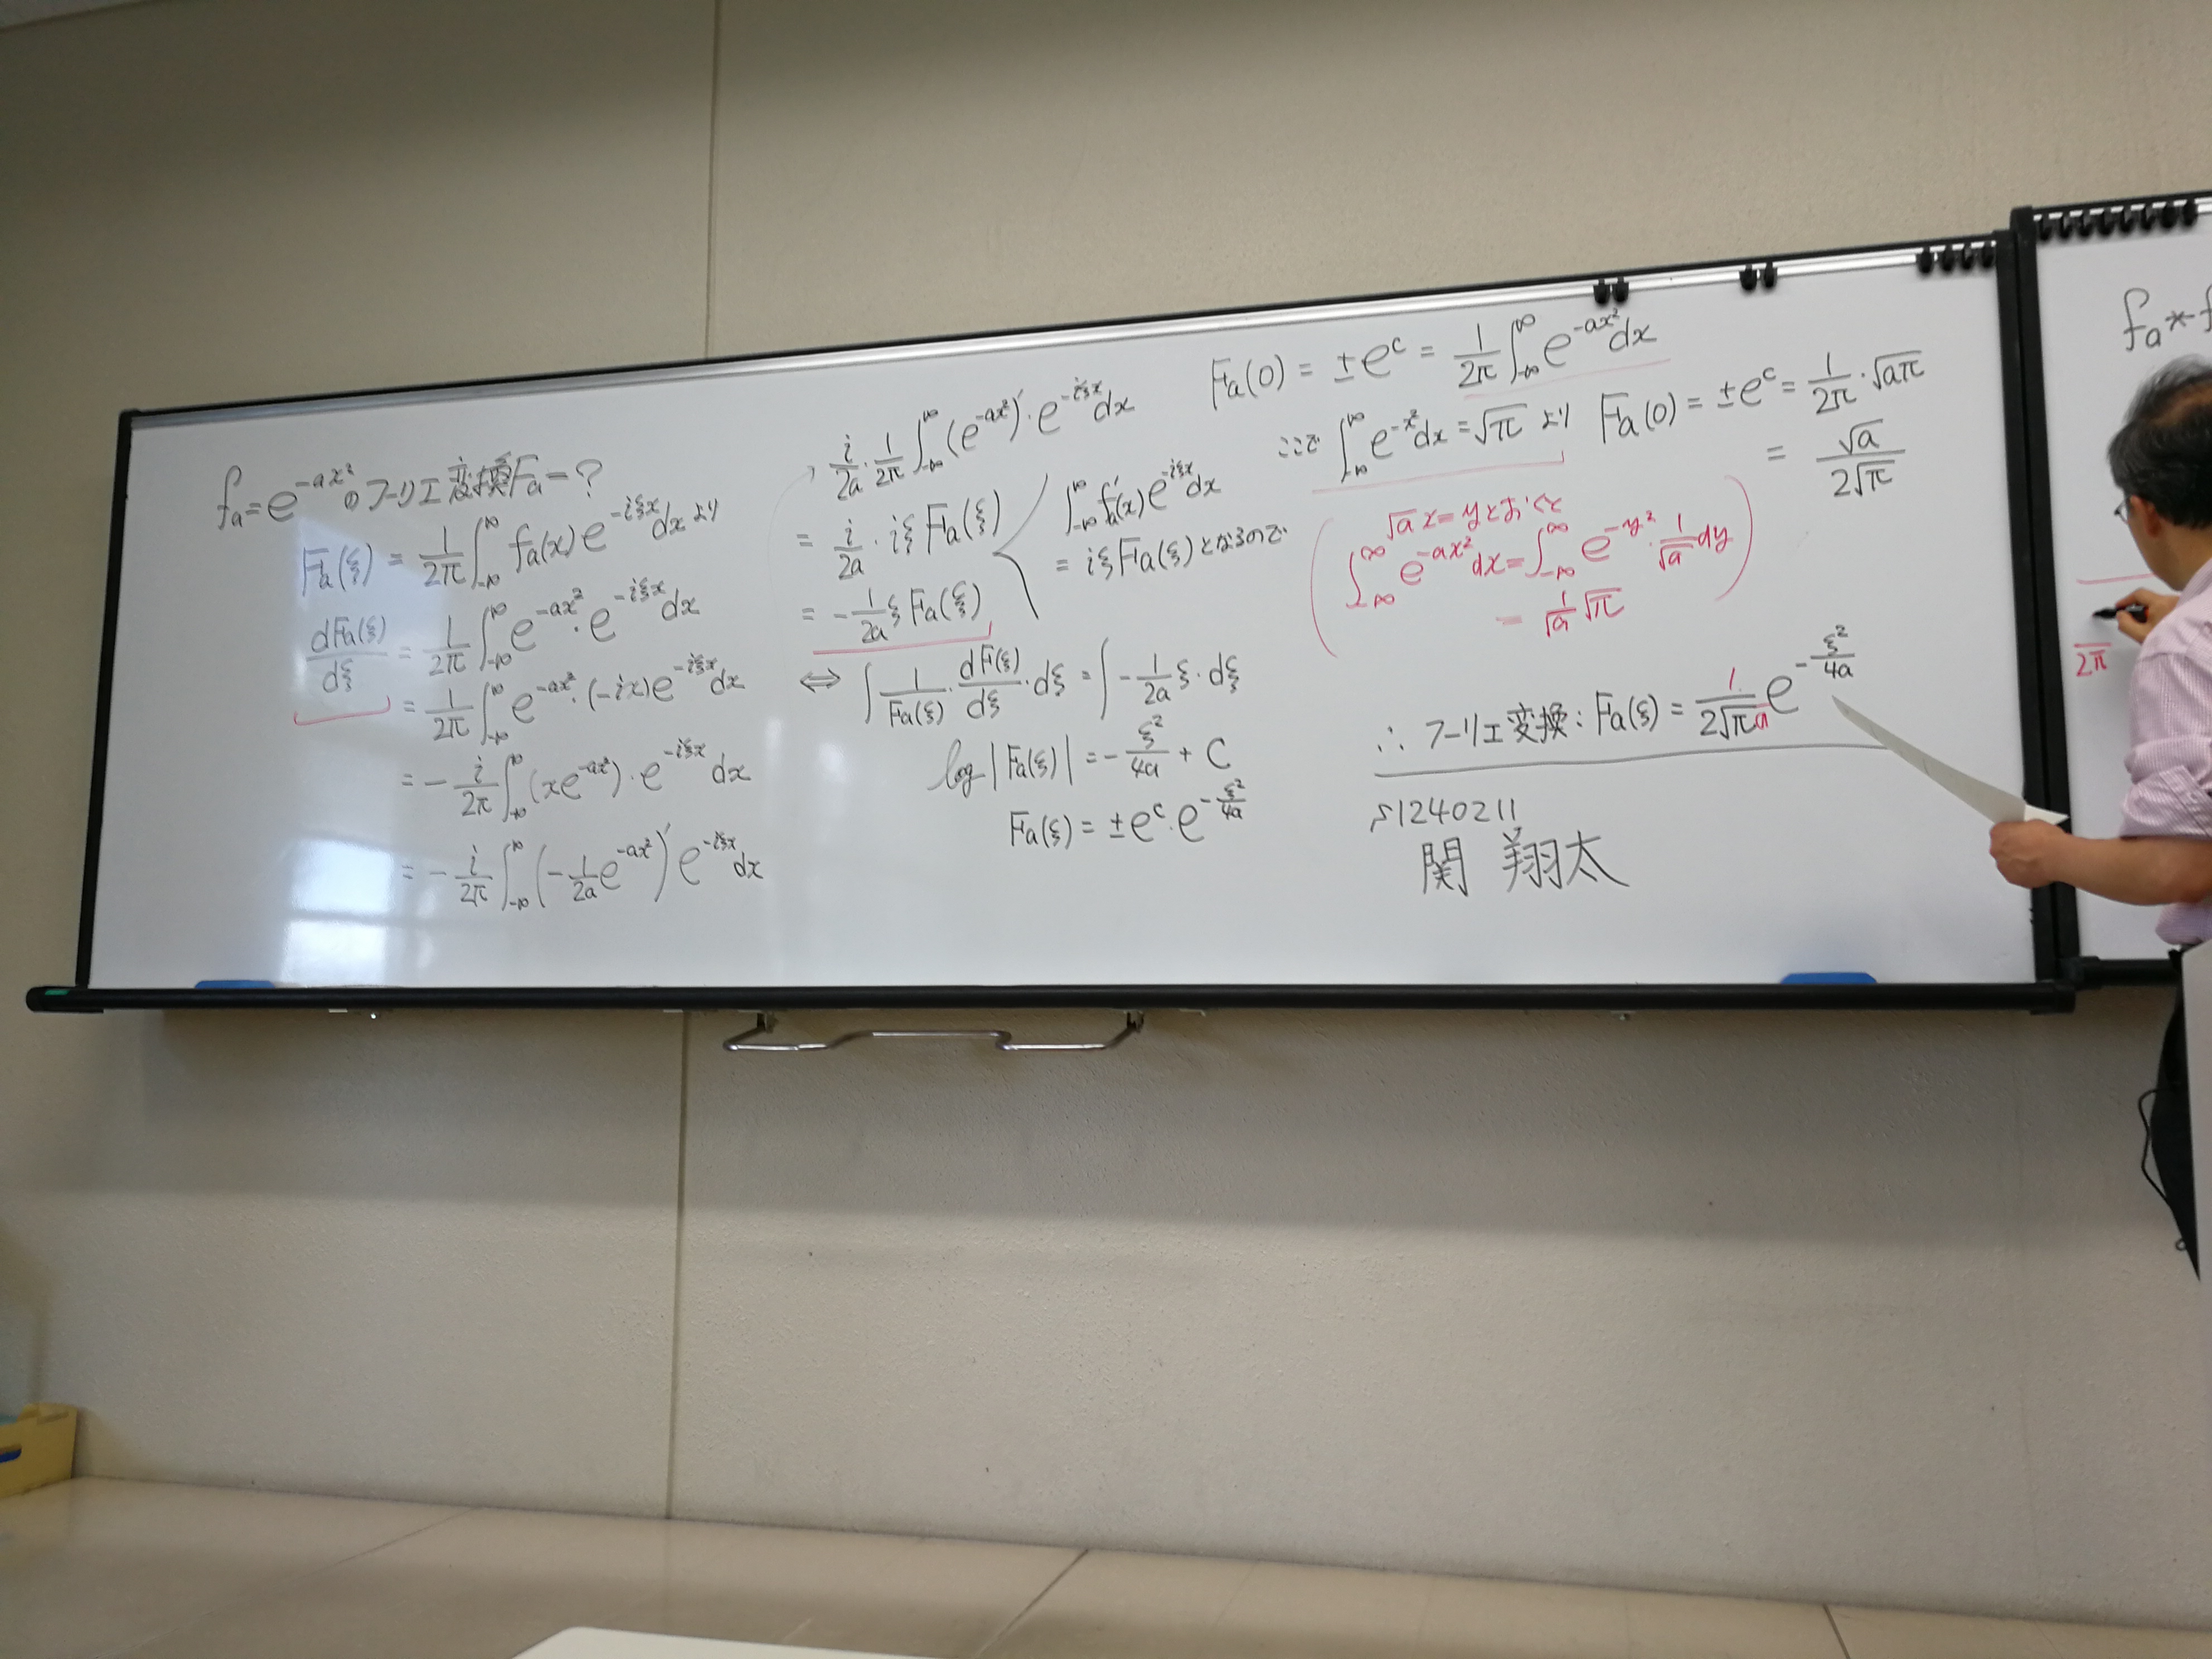 fₐ = e^{-ax²} のフーリエ変換 Fₐ = ?
Fₐ(ξ) = \frac{1}{2π} ∫_{-∞}^{∞} fₐ(x) e^{-iξx} dx より
\frac{dFₐ(ξ)}{dξ} = \frac{1}{2π} ∫_{-∞}^{∞} e^{-ax²} · e^{-iξx} dx
= \frac{1}{2π} ∫_{-∞}^{∞} e^{-ax²} · (-ix) e^{-iξx} dx
= -\frac{i}{2π} ∫_{-∞}^{∞} (xe^{-ax²}) · e^{-iξx} dx
= -\frac{i}{2π} ∫_{-∞}^{∞} (-\frac{1}{2a} e^{-ax²})' e^{-iξx} dx
\frac{i}{2a} · \frac{1}{2π} ∫_{-∞}^{∞} (e^{-ax²})' · e^{-iξx} dx
= \frac{i}{2a} · iξ Fₐ(ξ)
= -\frac{1}{2a} ξ Fₐ(ξ)
∫_{-∞}^{∞} fₐ'(x) e^{-iξx} dx
= iξ Fₐ(ξ) となるので
⇔ ∫ \frac{1}{Fₐ(ξ)} · \frac{dF(ξ)}{dξ} · dξ = ∫ -\frac{1}{2a} ξ · dξ
log |Fₐ(ξ)| = -\frac{ξ²}{4a} + C
Fₐ(ξ) = ±e^c · e^{-\frac{ξ²}{4a}}
Fₐ(0) = ±e^c = \frac{1}{2π} ∫_{-∞}^{∞} e^{-ax²} dx
ここで ∫_{-∞}^{∞} e^{-x²} dx = √π より Fₐ(0) = ±e^c = \frac{1}{2π} · √aπ
= \frac{√a}{2√π}
√a x = y とおくと
∫_{-∞}^{∞} e^{-ax²} dx = ∫_{-∞}^{∞} e^{-y²} · \frac{1}{√a} dy
= \frac{1}{√a} √π
∴ フーリエ変換: Fₐ(ξ) = \frac{1}{2√πa} e^{-\frac{ξ²}{4a}}
s1240211
関 翔太
fₐ * f
2π